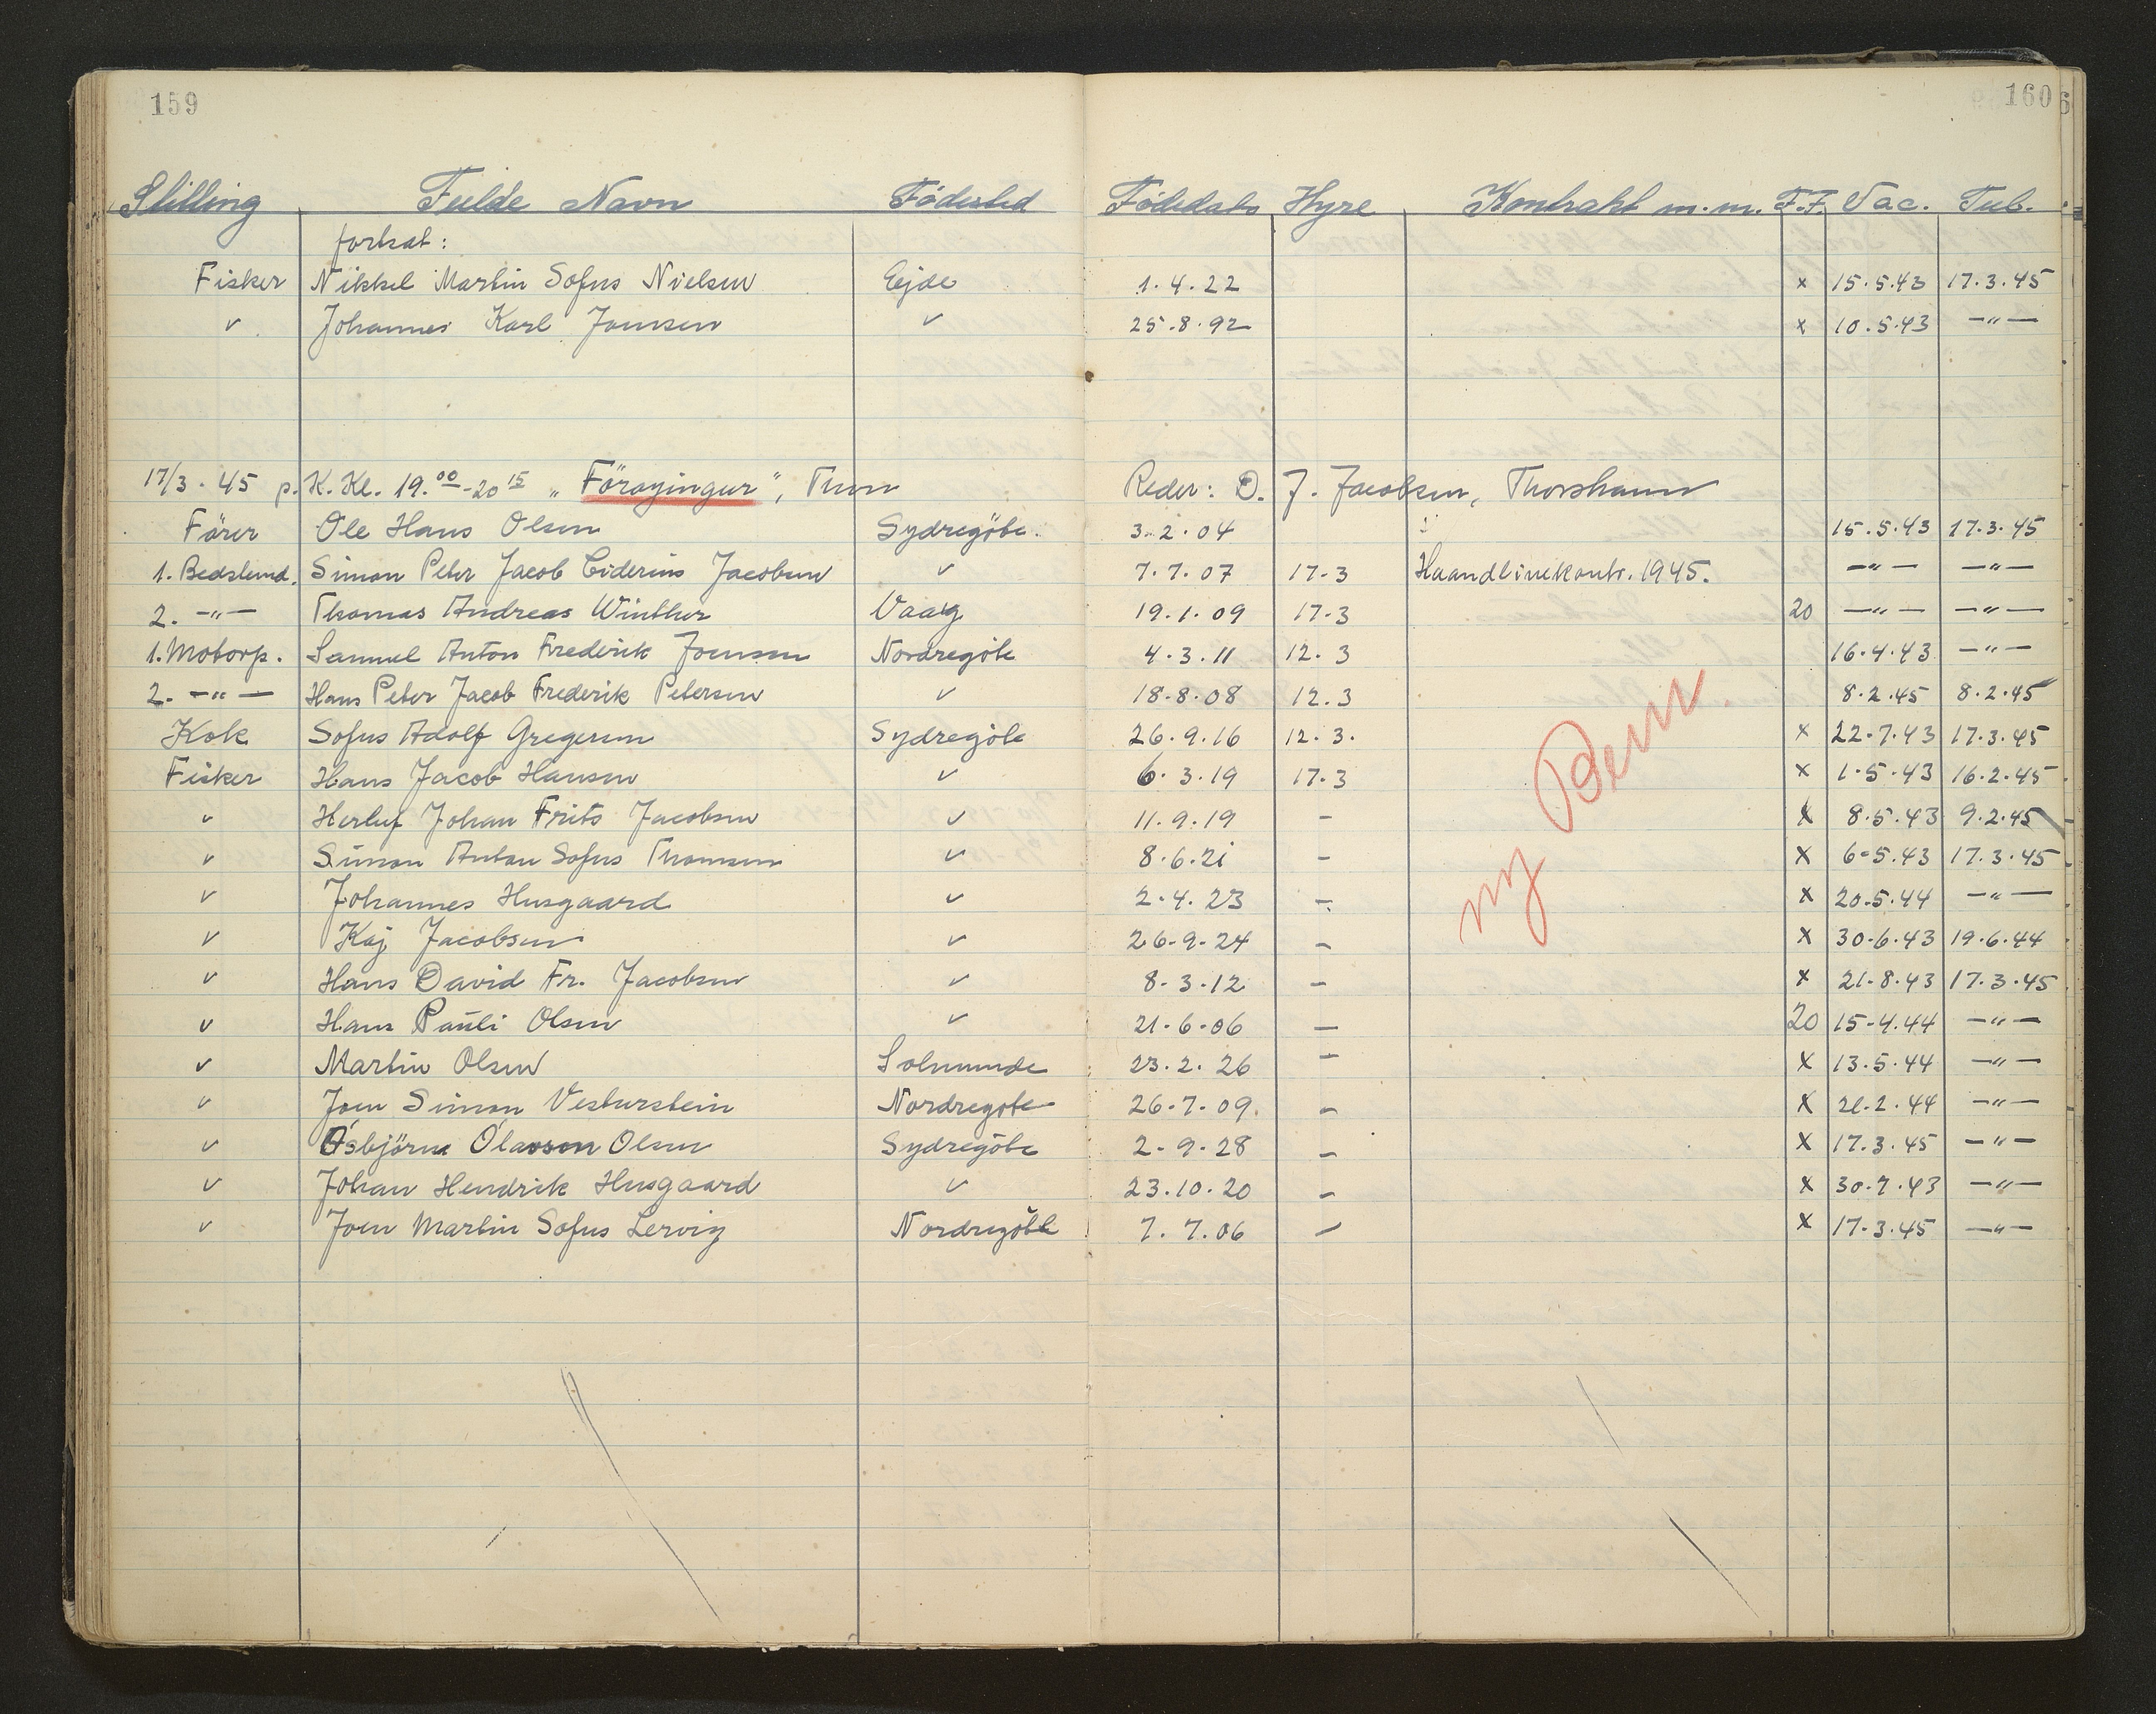 159 160
Stilling Fulde Navn Födested Födedato Hyre Kontrakt m.m. F.F. Vac. Tub.
fortsat:
Fisker Nikkel Martin Sofus Nielsen Ejde 1.4.22 x 15.5.43 17.3.45
v Johannes Karl Joensen v 25.8.92 x 10.5.43 —"—
17/3.45 p. K. Kl. 19.00-20 15 „Föroyingur", Thvn Reder: D. J. Jacobsen, Thorshavn
Förer Ole Hans Olsen Sydregöte. 3.2.04 15.5.43 17.3.45
1. Bedstemd. Simon Peter Jacob Eiderius Jacobsen v 7.7.07 17-3 Haandlinekontr. 1945. —"— —"—
2. —"— Thomas Andreas Winther Vaag 19.1.09 17-3 20 —"— —"—
1. Motorp. Samuel Anton Frederik Joensen Nordregöte 4.3.11 12.3 16.4.43 —"—
2. —"— Hans Peter Jacob Frederik Petersen v 18.8.08 12.3 8.2.45 8.2.45
Kok Sofus Adolf Gregersen Sydregöte 26.9.16 12.3. x 22.7.43 17.3.45
Fisker Hans Jacob Hansen v 6.3.19 17.3 x 1.5.43 16.2.45
v Herluf Johan Frits Jacobsen v 11.9.19 - x 8.5.43 9.2.45
v Simon Anton Sofus Thomsen v 8.6.21 - x 6-5.43 17.3.45
v Johannes Husgaard v 2.4.23 - x 20.5.44 —"—
v Kaj Jacobsen v 26-9-24 - x 30-6.43 19.6.44
v Hans David Fr. Jacobsen v 8-3-12 - x 21-8.43 17.3.45
v Hans Pauli Olsen v 21-6-06 - 20 15-4.44 —"—
v Martin Olsen Solmunde 23.2.26 - x 13.5.44 —"—
v Joen Simon Vesturstein Nordregöte 26-7-09. - x 21.2.44 —"—
v Ósbjörn Ólavson Olsen Sydregöte 2-9-28 - x 17.3.45 —"—
v Johan Hendrik Husgaard v 23.10.20 - x 30-7.43 —"—
v Joen Martin Sofus Lervig Nordregöte 7.7.06 - x 17-3.45 —"—
ny